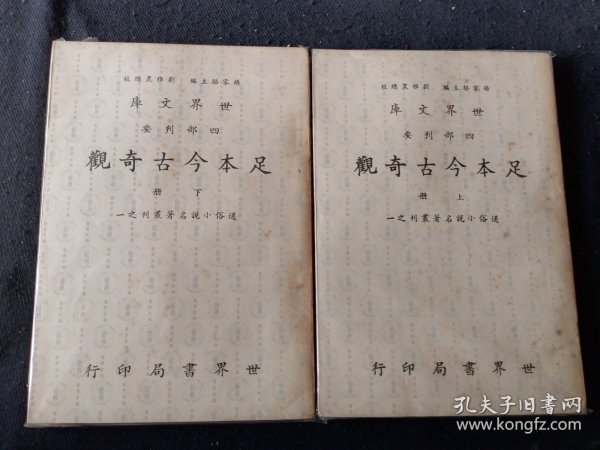 楊家駱主編 劉雅農總校
世界文庫
四部刊要
足本今古奇觀
上冊
通俗小說名著叢刊之一
世界書局印行
楊家駱主編 劉雅農總校
世界文庫
四部刊要
足本今古奇觀
下冊
通俗小說名著叢刊之一
世界書局印行
孔夫子旧书网
www.kongfz.com